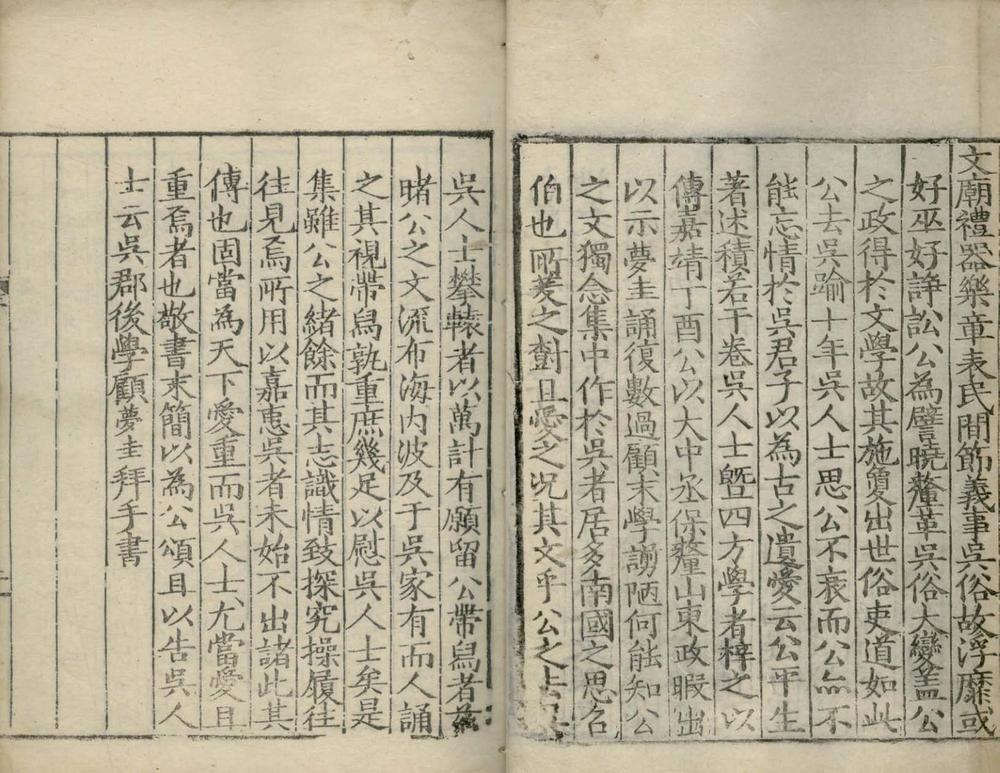 文廟禮器樂章表民間節義事吳俗故浮靡或
好巫好諍訟公為譬曉釐革吳俗大變盖公
之政得於文學故其施夐出世俗吏道如此
公去吳踰十年吳人士思公不衰而公無不
能忘情於吳君子以為古之遺愛云公平生
著述積若干卷吳人士暨四方學者梓之以
傳嘉靖丁酉公以大中丞保釐山東政暇出
以示夢圭誦復數過顧末學謭陋何能知公
之文獨念集中作於吳者居多南國之思召
伯也所茇之對且愛之况其文乎公之去
吳人士攀轅者以萬計有願留公帶舄者茲
睹公之文流布海内波及于吳家有而人誦
之其視帶舄孰重庶幾足以慰吳人士矣是
集雖公之緒餘而其志識情致探究操履往
往見焉所用以嘉惠吳者未始不出諸此其
傳也固當為天下愛重而吳人士尤當愛且
重焉者也敬書末簡以為公頌且以告吳人
士云吳郡後學顧夢圭拜手書